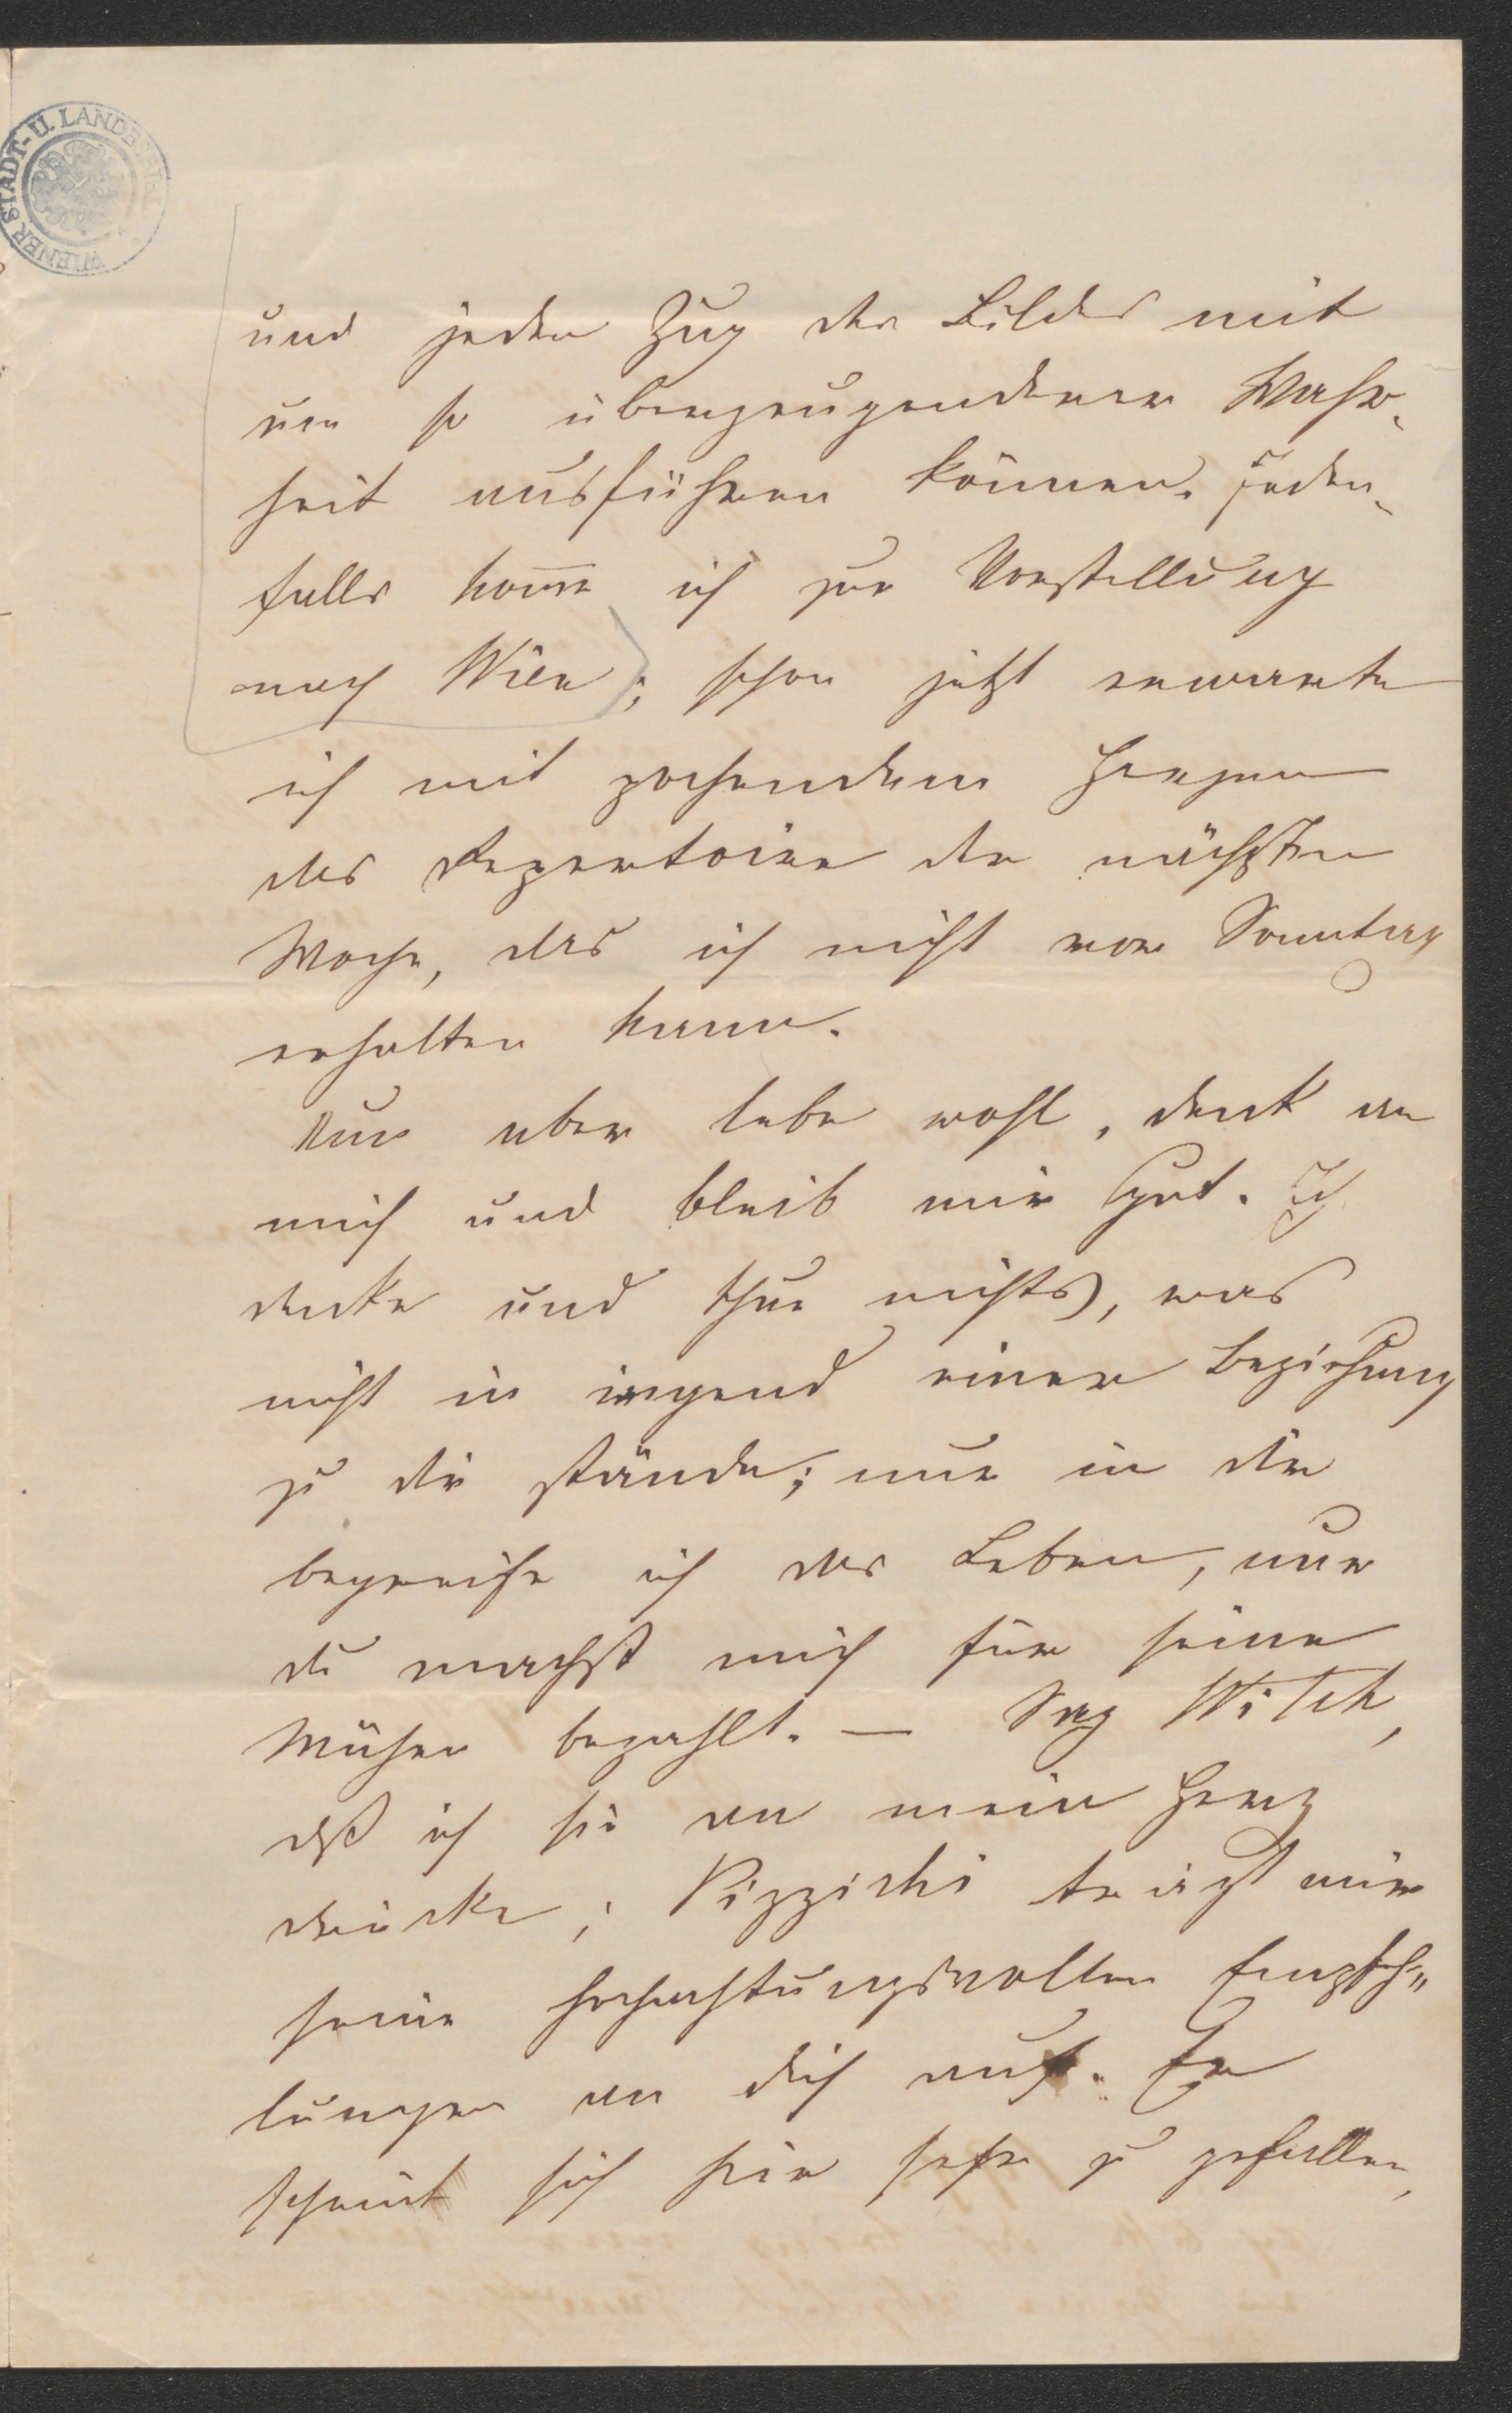 WIENER STADT- U. LANDESBIBL.
und jeden Zug des Bildes mit
um so überzeugenderer Wahr-
heit ausführen können. Jeden-
falls kom̅e ich zur Vorstellung
nach Wien; schon jetzt erwarte
ich mit pochendem Herzen
das Repertoire der nächsten
Woche, das ich nicht vor Sonntag
erhalten kann.
Nun aber lebe wohl, denk an
mich und bleib mir gut. Ich
denke und thue nichts, was
nicht in irgend einer Beziehung
zu dir stände; nur in dir
begreife ich das Leben, nur
du machst mich für seine
Mühen bezahlt. — Sag
daß ich sie an mein Herz
drücke; trägt mir
seine hochachtungsvollen Empfeh"
lungen an dich auf. Er
scheint sich hier sehr zu gefallen,